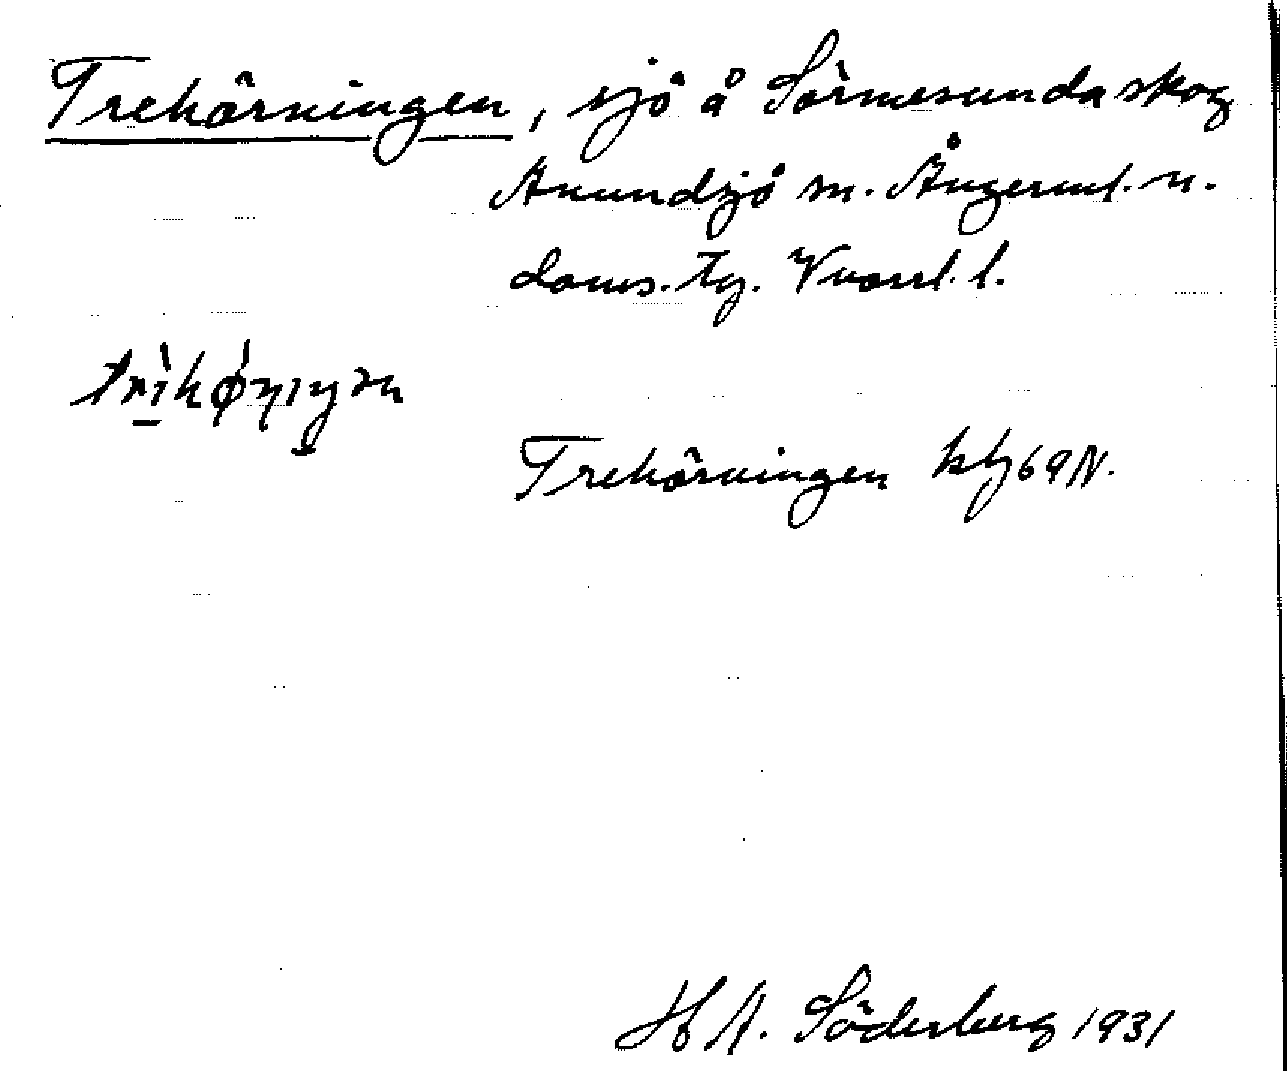 Trehörningen, sjö å Sörmesunda skog
Anundsjö sn. Ångerml. n.
doms. tg. Vnorrl. l.
Trehörningen kbl 69 N.
H A. Söderberg 1931